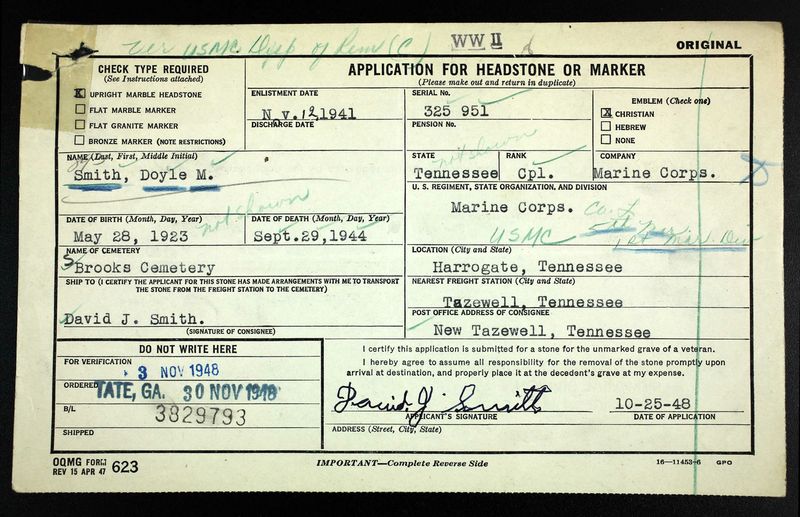 Ver USMC Disp of Rem (C) WW II
ORIGINAL
CHECK TYPE REQUIRED
(See Instructions attached)
X UPRIGHT MARBLE HEADSTONE
FLAT MARBLE MARKER
FLAT GRANITE MARKER
BRONZE MARKER (NOTE RESTRICTIONS)
APPLICATION FOR HEADSTONE OR MARKER
(Please make out and return in duplicate)
ENLISTMENT DATE
N v. 12, 1941
DISCHARGE DATE
SERIAL No.
325 951
PENSION No.
EMBLEM (Check one)
X CHRISTIAN
HEBREW
NONE
NAME (Last, First, Middle Initial)
Smith, Doyle M.
STATE
Tennessee
not shown
RANK
Cpl.
COMPANY
Marine Corps.
U. S. REGIMENT, STATE ORGANIZATION, AND DIVISION
Marine Corps. Co. L
USMC 1st Mar Div
DATE OF BIRTH (Month, Day, Year)
May 28, 1923
not shown
DATE OF DEATH (Month, Day, Year)
Sept. 29, 1944
NAME OF CEMETERY
Brooks Cemetery
LOCATION (City and State)
Harrogate, Tennessee
SHIP TO (I CERTIFY THE APPLICANT FOR THIS STONE HAS MADE ARRANGEMENTS WITH ME TO TRANSPORT
THE STONE FROM THE FREIGHT STATION TO THE CEMETERY)
David J. Smith.
(SIGNATURE OF CONSIGNEE)
NEAREST FREIGHT STATION (City and State)
Tazewell, Tennessee
POST OFFICE ADDRESS OF CONSIGNEE
New Tazewell, Tennessee
DO NOT WRITE HERE
FOR VERIFICATION
3 NOV 1948
ORDERED
TATE, GA. 30 NOV 1948
B/L
3829793
SHIPPED
I certify this application is submitted for a stone for the unmarked grave of a veteran.
I hereby agree to assume all responsibility for the removal of the stone promptly upon
arrival at destination, and properly place it at the decedent's grave at my expense.
David J. Smith
APPLICANT'S SIGNATURE
10-25-48
DATE OF APPLICATION
ADDRESS (Street, City, State)
OQMG FORM
REV 15 APR 47 623
IMPORTANT—Complete Reverse Side
16—11453-6 GPO